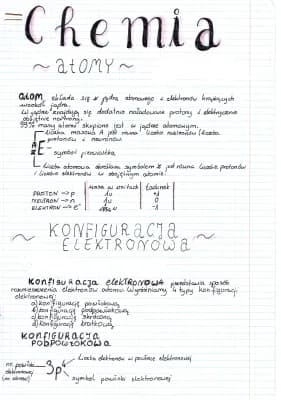 Chemia
~ atomy ~
atom składa się z jądra atomowego i elektronów krążących
wokół jądra.
W jądrze znajdują się dodatnio naładowane protony i elektrycznie
obojętne neutrony.
99% masy atomu skupione jest w jądrze atomowym.
Liczba masowa A jest równa liczbie nukleonów (liczba
protonów i neutronów
A
E - symbol pierwiastka
Z
Liczba atomowa określana symbolem Z jest równa liczbie protonów
i liczbie elektronów w obojętnym atomie.
masa w unitach ładunek
PROTON -> p 1u +1
NEUTRON -> n 1u 0
ELEKTRON -> e⁻ -1
~ KONFIGURACJA
ELEKTRONOWA ~
Konfiguracja elektronowa przedstawia sposób
rozmieszczenia elektronów atomu. Wyróżniamy 4 typy konfiguracji
elektronowej:
a) konfigurację powłokową
b) konfigurację podpowłokową
c) konfigurację skróconą
d) konfigurację klatkową
KONFIGURACJA
PODPOWŁOKOWA
liczba elektronów w powłoce elektronowej
nr. powłoki
elektronowej 3p⁴
symbol powłoki elektronowej